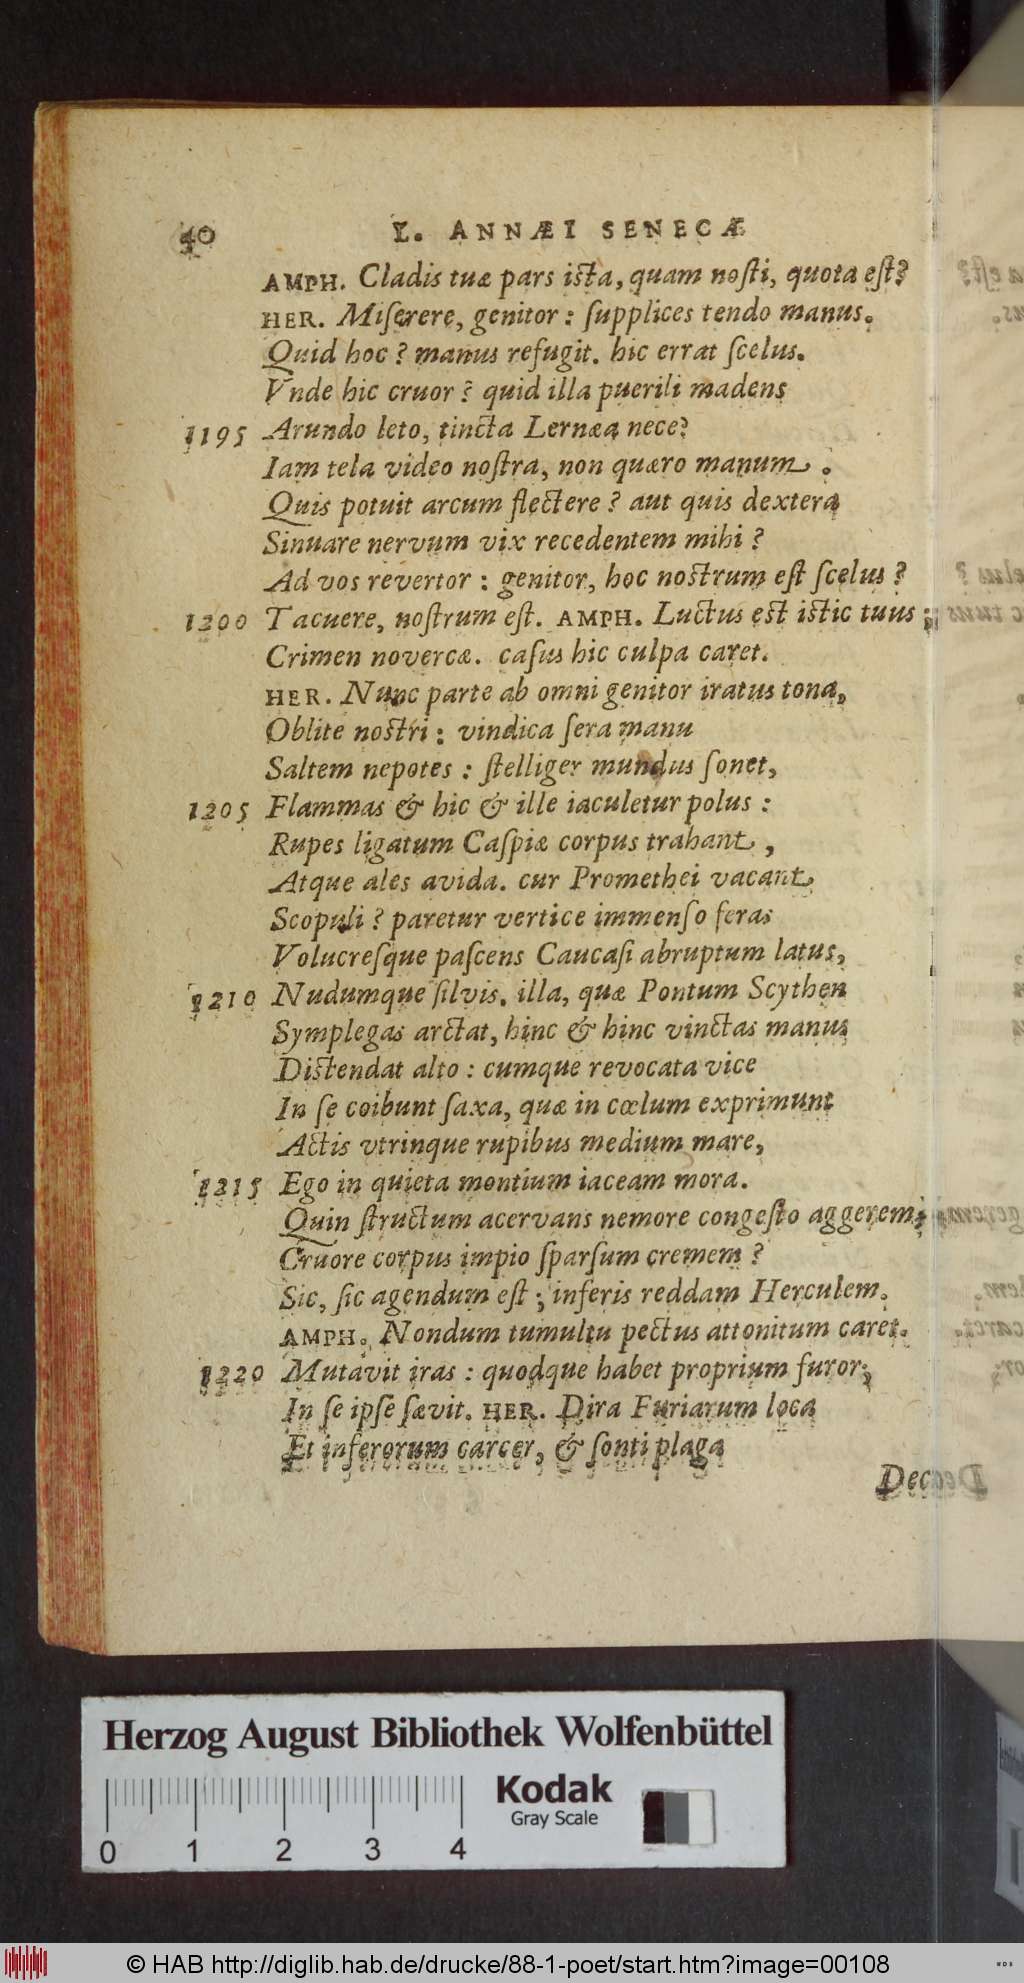 40 L. ANNÆI SENECÆ
AMPH. Cladis tuæ pars ista, quam nosti, quota est?
HER. Miserere, genitor : supplices tendo manus.
Quid hoc ? manus refugit. hic errat scelus.
Vnde hic cruor ? quid illa puerili madens
1195 Arundo leto, tincta Lernæa nece?
Iam tela video nostra, non quæro manum.
Quis potuit arcum flectere ? aut quis dextera
Sinuare nervum vix recedentem mihi ?
Ad vos revertor : genitor, hoc nostrum est scelus ?
1200 Tacuere, nostrum est. AMPH. Luctus est istic tuus ;
Crimen novercæ. casus hic culpa caret.
HER. Nunc parte ab omni genitor iratus tona,
Oblite nostri : vindica sera manu
Saltem nepotes : stelliger mundus sonet,
1205 Flammas & hic & ille iaculetur polus :
Rupes ligatum Caspiæ corpus trahant,
Atque ales avida. cur Promethei vacant
Scopuli ? paretur vertice immenso feras
Volucresque pascens Caucasi abruptum latus,
1210 Nudumque silvis. illa, quæ Pontum Scythen
Symplegas arctat, hinc & hinc vinctas manus
Distendat alto : cumque revocata vice
In se coibunt saxa, quæ in cœlum exprimunt
Actis vtrinque rupibus medium mare,
1215 Ego in quieta montium iaceam mora.
Quin structum acervans nemore congesto aggerem,
Cruore corpus impio sparsum cremem ?
Sic, sic agendum est ; inferis reddam Herculem.
AMPH. Nondum tumultu pectus attonitum caret.
1220 Mutavit iras : quodque habet proprium furor,
In se ipse sævit. HER. Dira Furiarum loca
Et inferorum carcer, & sonti plaga
Deco
Herzog August Bibliothek Wolfenbüttel
Kodak
Gray Scale
0 1 2 3 4
© HAB http://diglib.hab.de/drucke/88-1-poet/start.htm?image=00108